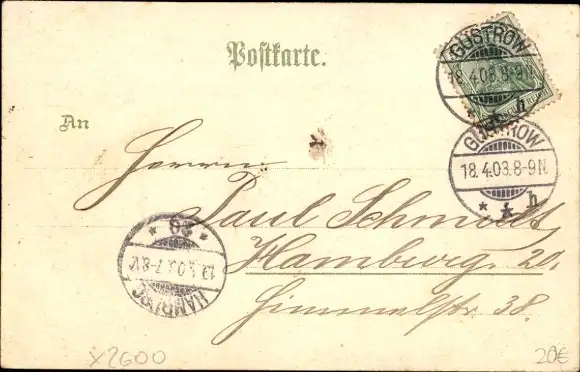 Postkarte.
GÜSTROW
18.4.03.8-9N.
* * h
GÜSTROW
18.4.03.8-9N.
* * h
An
Herrn
Paul Schmidt,
Hamburg. 20.
Himmelstr. 38.
HAMBURG
19.4.03.7-8V.
* 20 *
X2600
20€